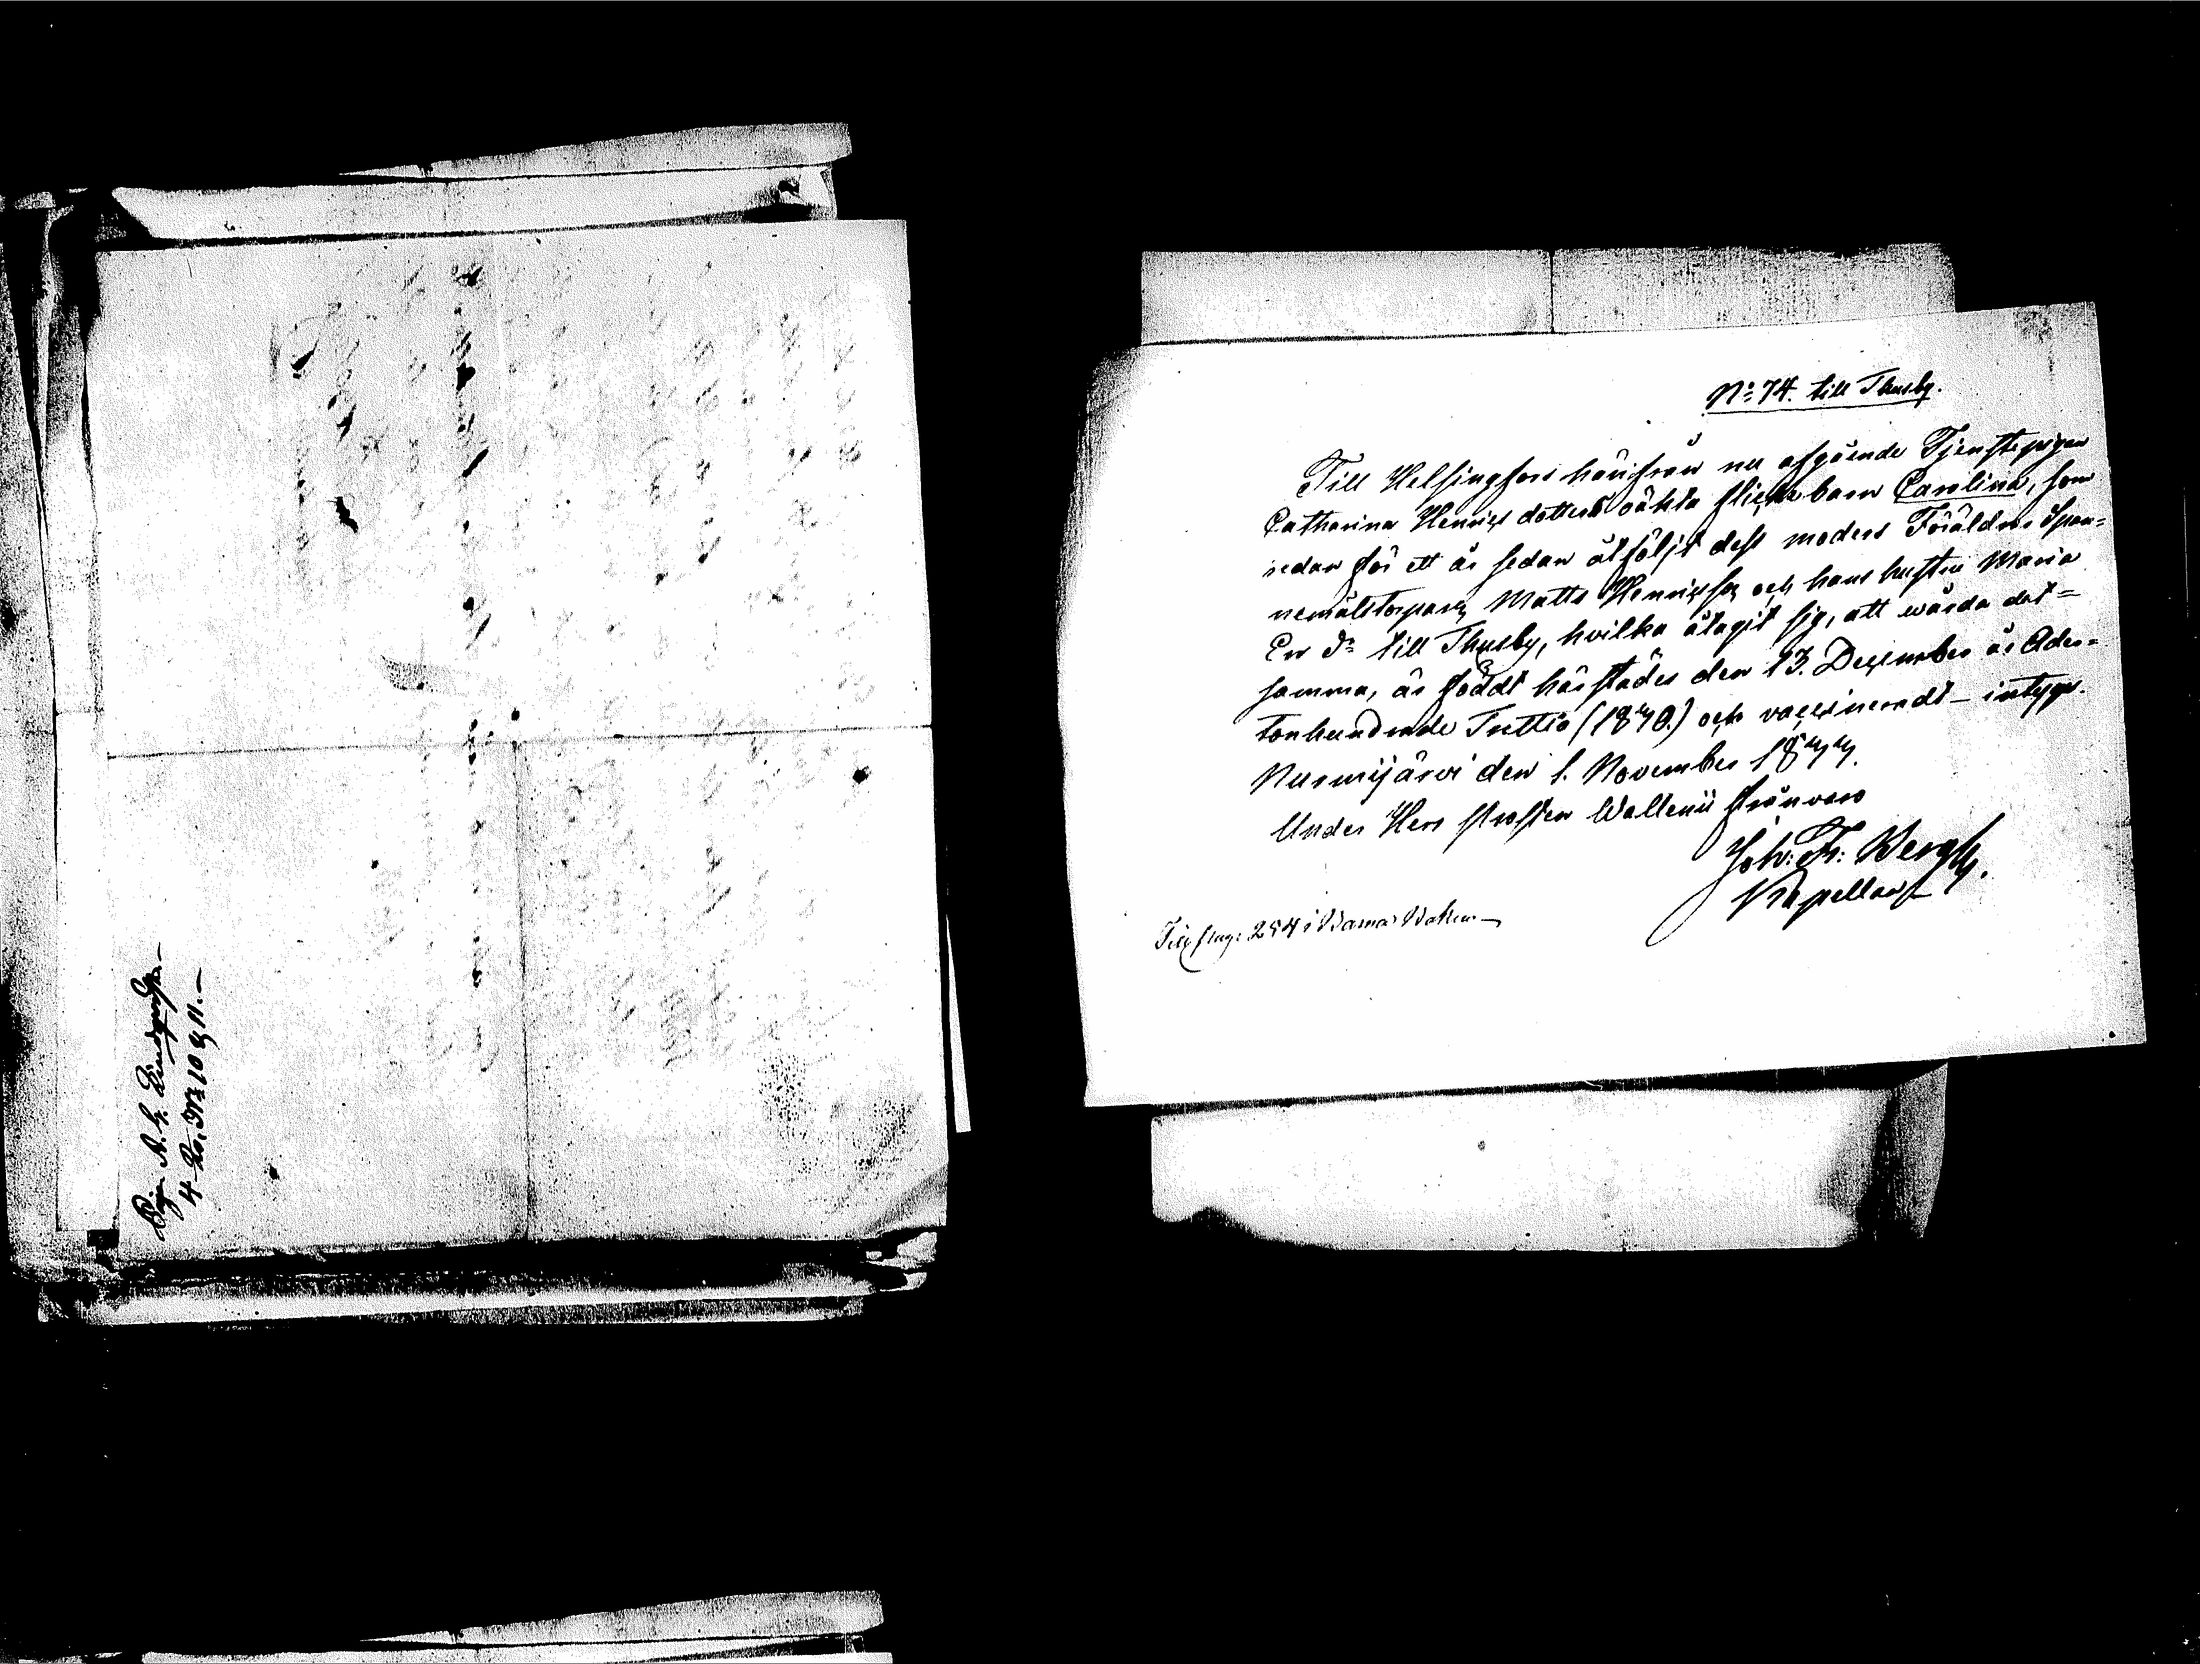 Pigan A. G. Lindqvist.—
4 Ro. № 10 & 11.—
No 74. till Thusby.
Till Helsingfors härifrån nu afgående Tjenstepigan
Catharina Henricsdotters oäkta flickebarn Carolina, som
redan för ett år sedan åtföljt dess moders Föräldrar Span-
nemålstorparn Matts Henricss och hans hustru Maria
Ers dr till Thusby, hvilka åtagit sig, att wårda det-
samma, är föddt härstädes den 13. December år Ader-
tonhundrade Sjuttio (1870.) och vaccineradt – intygar.
Nurmijärvi den 1. November 1877.
Under Herr Prosten Wallenii frånvaro
Joh: Fr: Bergh.
Kapellan
pag: 254 i Barna Boken—